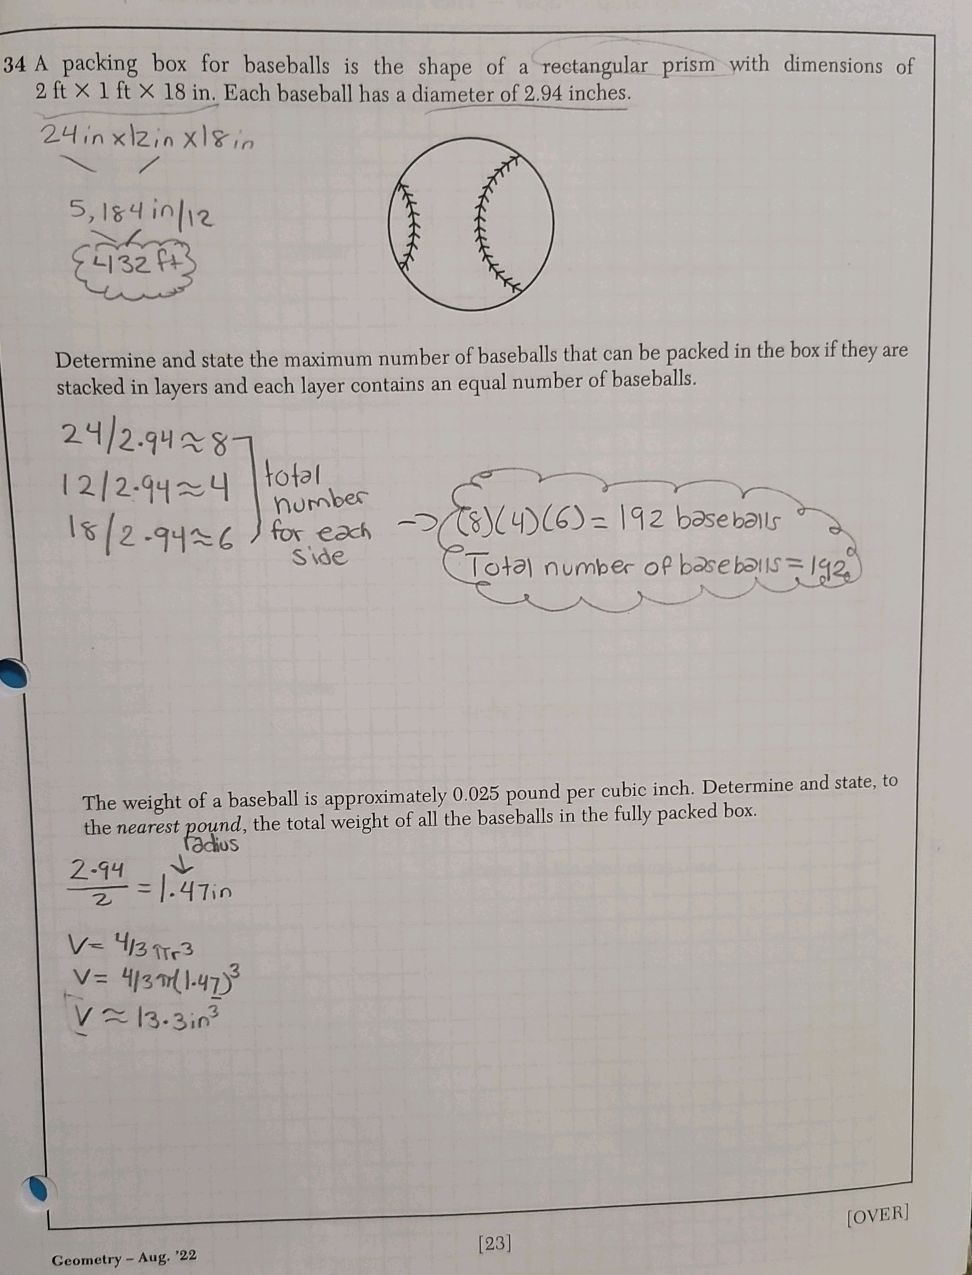 34 A packing box for baseballs is the shape of a rectangular prism with dimensions of
2 ft × 1 ft × 18 in. Each baseball has a diameter of 2.94 inches.
24in x12in x18in
5,184in/12
432 ft
Determine and state the maximum number of baseballs that can be packed in the box if they are
stacked in layers and each layer contains an equal number of baseballs.
24/2.94≈8
12/2.94≈4
18/2.94≈6
total
number
for each
side
→ (8)(4)(6) = 192 baseballs
Total number of baseballs = 192
The weight of a baseball is approximately 0.025 pound per cubic inch. Determine and state, to
the nearest pound, the total weight of all the baseballs in the fully packed box.
radius
↓
2.94/2 = 1.47in
V= 4/3 πr³
V= 4/3π(1.47)³
V ≈ 13.3in³
[OVER]
[23]
Geometry – Aug. '22